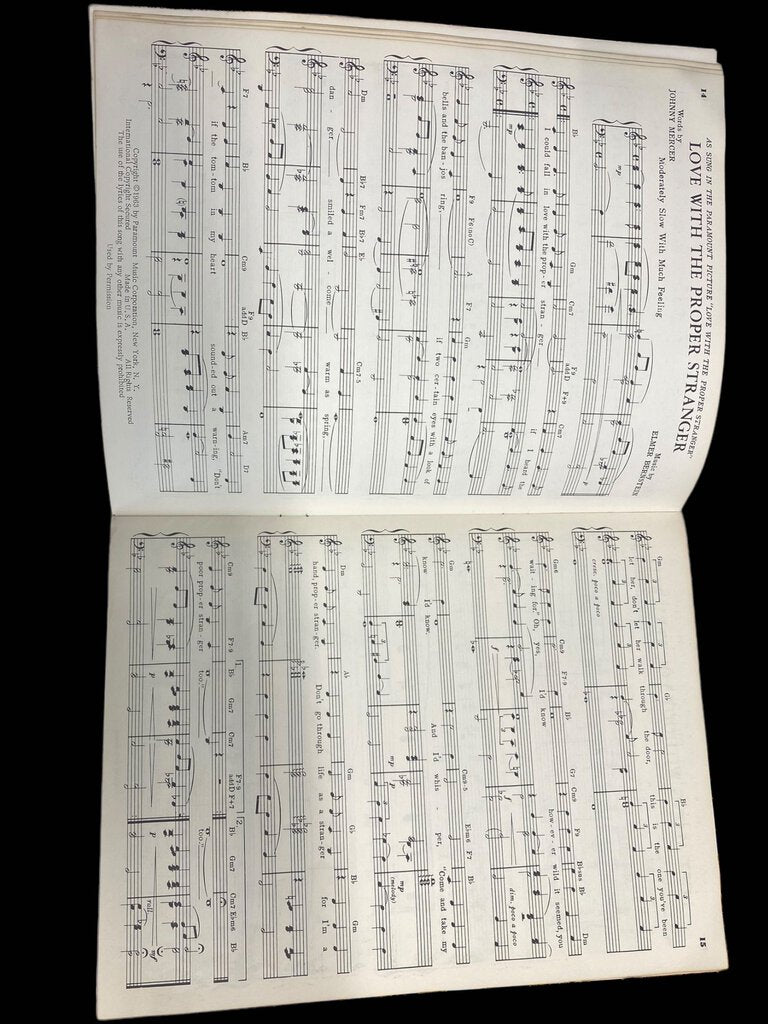 14
AS SUNG IN THE PARAMOUNT PICTURE "LOVE WITH THE PROPER STRANGER"
LOVE WITH THE PROPER STRANGER
Words by
JOHNNY MERCER
Music by
ELMER BERNSTEIN
Moderately Slow With Much Feeling
mp
B♭ Gm Cm7 F9 addD F+9 Cm7
I could fall in love with the prop-er stran-ger if I heard the
mp
F9 F6(noC) A F7 Gm
bells and the ban-jos ring, if two cer-tain eyes with a look of
Dm B♭7 Fm7 B♭7 E♭ Cm7-5
dan-ger smiled a wel-come warm as spring,
F7 B♭ Cm9 F9 addD B♭ Am7 D7
if the tom-tom in my heart sound-ed out a warn-ing, "Don't
Copyright ©1963 by Paramount Music Corporation, New York, N. Y.
International Copyright Secured Made in U.S.A. All Rights Reserved
The use of the lyrics of this song with any other music is expressly prohibited
Used by Permission
15
Gm G♭ B♭
let her, don't let her walk through the door, this is the one you've been
cresc. poco a poco
Gm6 Cm9 F7-9 B♭ G7 Cm9 F9 B♭sus B♭ Dm
wait-ing for." Oh, yes, I'd know how-ev-er wild it seemed, you
f dim. poco a poco
Gm Cm9-5 E♭m6 F7 B♭
know I'd know. And I'd whis-per, "Come and take my
mp p mp (melody)
Dm A♭ Gm G♭ B♭ Gm
hand, prop-er stran-ger. Don't go through life as a stran-ger for I'm a
Cm9 F7-9 1. B♭ Gm7 Cm7 F7-9 addD F+7 2. B♭ Gm7 Cm7 E♭m6 B♭
poor prop-er stran-ger too." too."
p p rall.